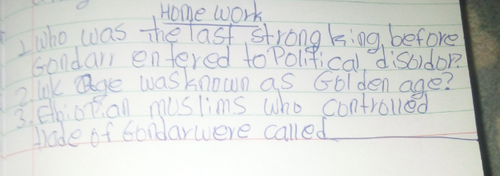 Home work
1. Who was the last strong king before
Gondarr entered to Political disoldor?
2. WK Age was known as Golden age?
3. Ethiopian muslims who controlled
trade of Gondar were called